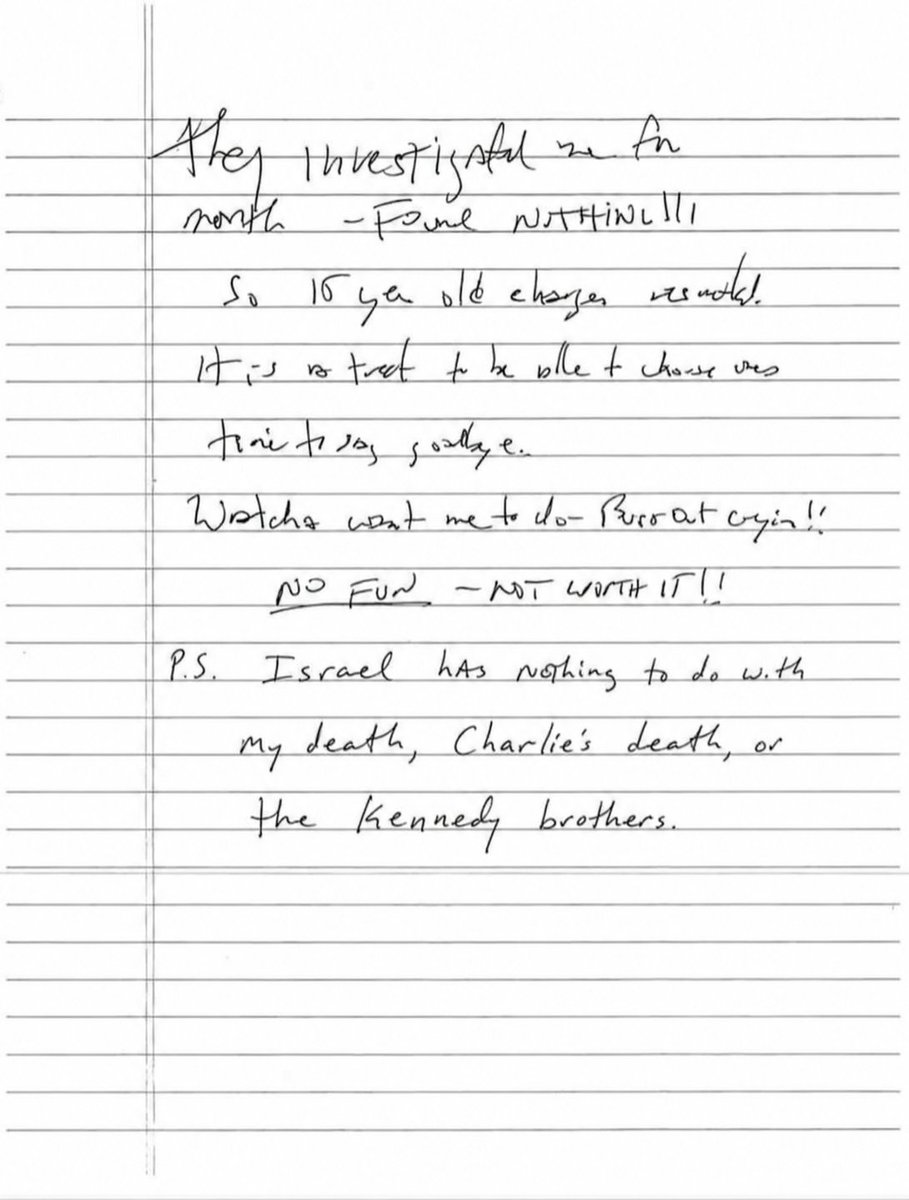 They investigated me for
month – Found NOTHING!!!
So 15 year old charges resulted.
It is a treat to be able to choose ones
time to say goodbye.
Watcha want me to do – Burst out cryin!!
NO FUN – NOT WORTH IT!!
P.S. Israel has nothing to do with
my death, Charlie's death, or
the Kennedy brothers.